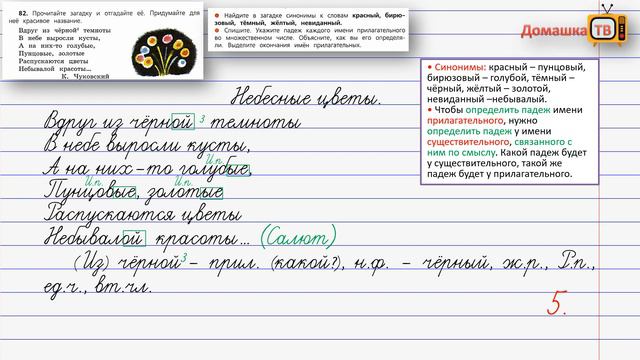 82. Прочитайте загадку и отгадайте её. Придумайте для
неё красивое название.
Вдруг из чёрной³ темноты
В небе выросли кусты,
А на них-то голубые,
Пунцовые, золотые
Распускаются цветы
Небывалой красоты...
К. Чуковский
Найдите в загадке синонимы к словам красный, бирю-
зовый, тёмный, жёлтый, невиданный.
Спишите. Укажите падеж каждого имени прилагательного
во множественном числе. Объясните, как вы его определя-
ли. Выделите окончания имён прилагательных.
Домашка
ТВ
• Синонимы: красный – пунцовый,
бирюзовый – голубой, тёмный –
чёрный, жёлтый – золотой,
невиданный –небывалый.
• Чтобы определить падеж имени
прилагательного, нужно
определить падеж у имени
существительного, связанного с
ним по смыслу. Какой падеж будет
у существительного, такой же
падеж будет у прилагательного.
Небесные цветы.
Вдруг из чёрной ³ темноты
В небе выросли кусты,
И.п.
А на них-то голубые,
И.п. И.п.
Пунцовые, золотые
Распускаются цветы
Небывалой красоты... (Салют)
(Из) чёрной³ – прил. (какой?), н.ф. – чёрный, ж.р., Р.п.,
ед.ч., вт.чл.
5.